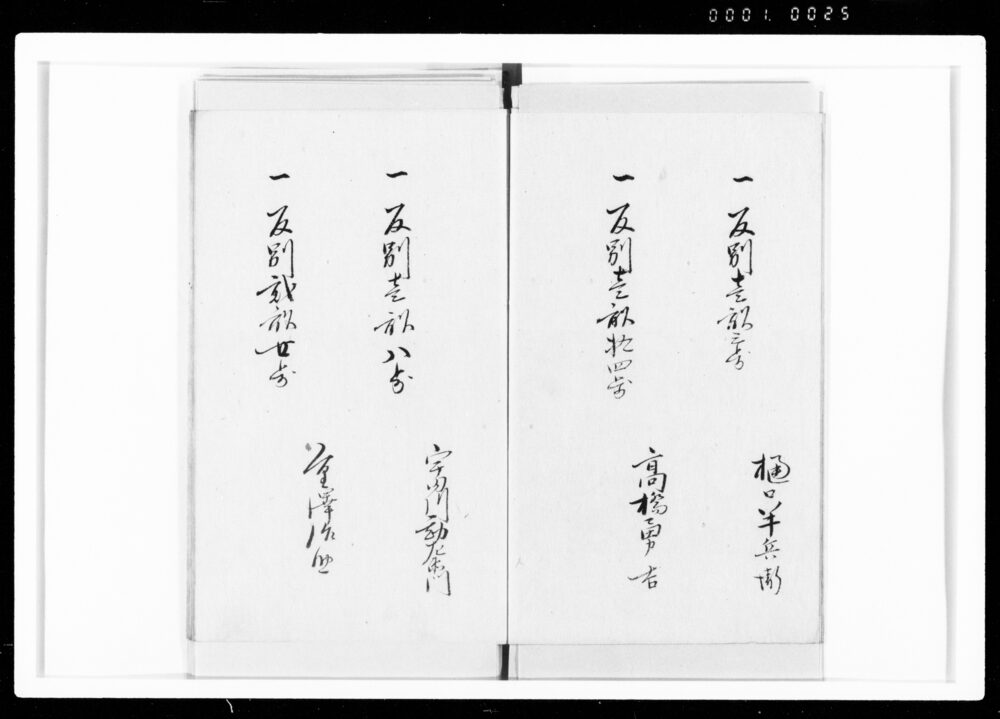 0001. 0025
一 反別壱畝三歩
樋口半兵衛
一 反別壱畝拾四歩
高橋勇右
一 反別壱畝八歩
宇川勘左衛門
一 反別弐畝廿歩
澤治助